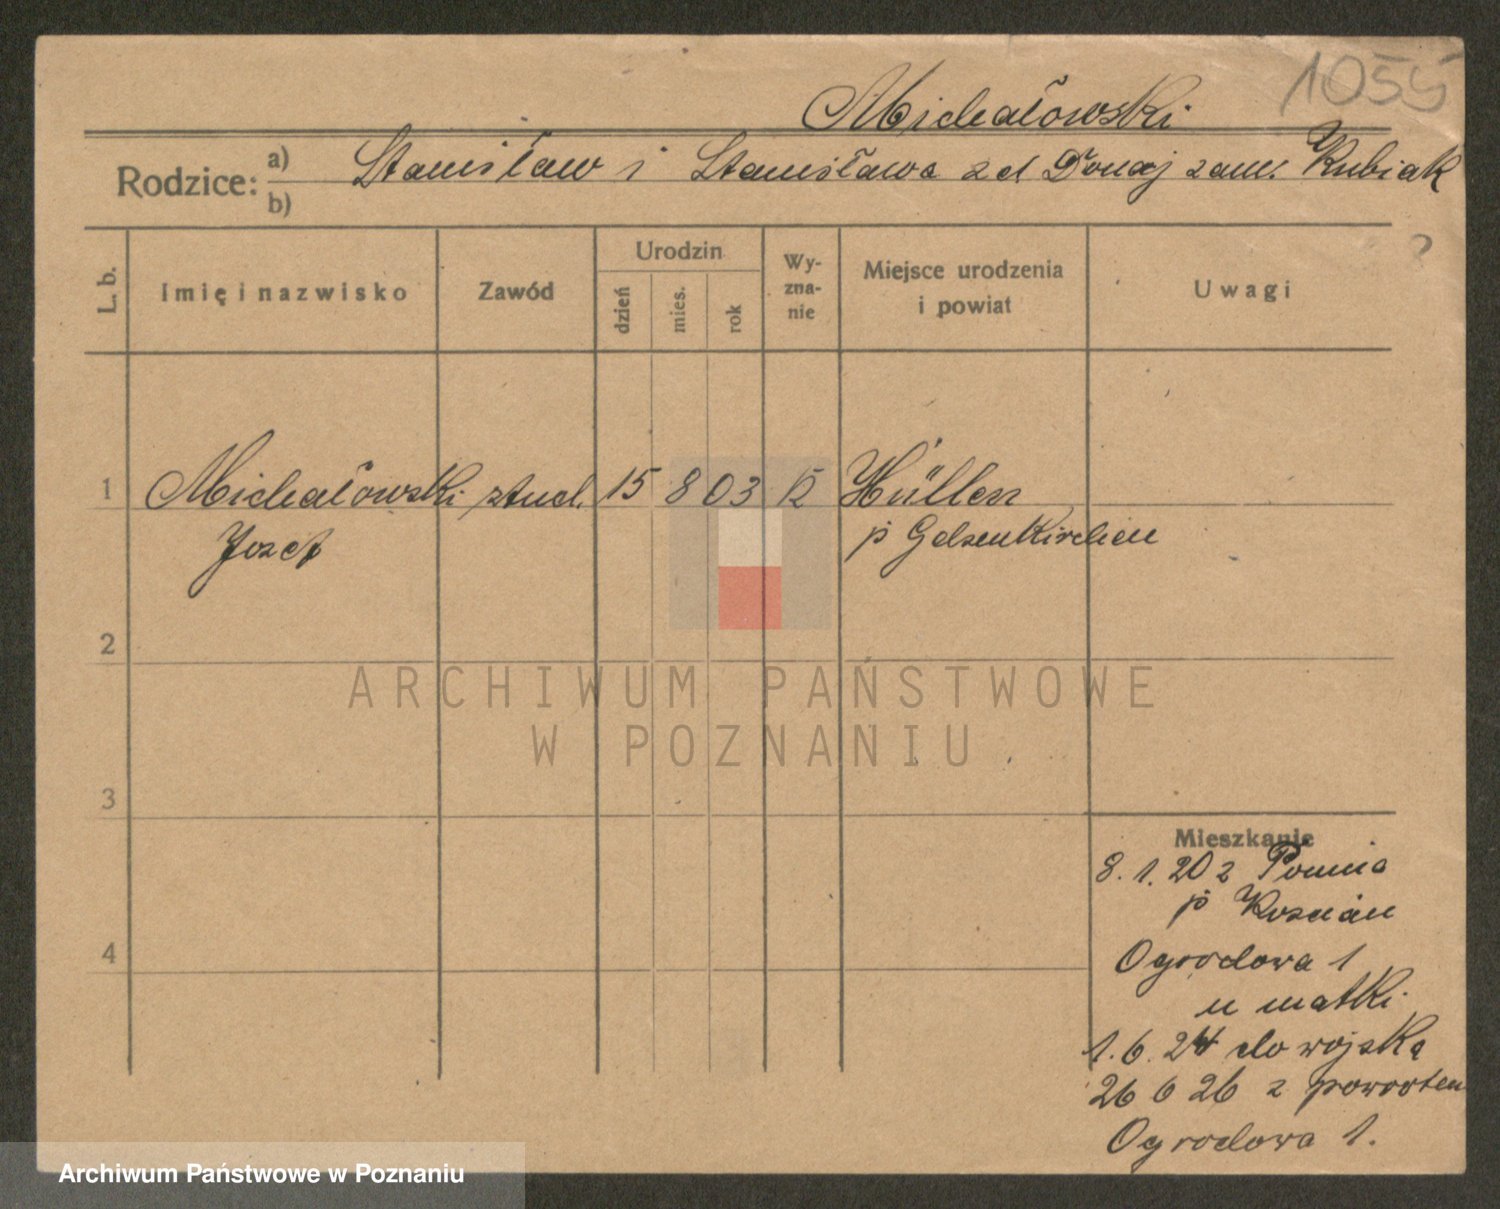 1055
Michałowski
Rodzice: a) b)
Stanisław i Stanisława z d Donaj zam. Kubiak
?
L. b.
Imię i nazwisko
Zawód
Urodzin
dzień
mies.
rok
Wy-
zna-
nie
Miejsce urodzenia
i powiat
Uwagi
1 Michałowski stud. 15 8 03 k Hüllen
Józef p Gelsenkirchen
2
3
4
Mieszkanie
8. 1. 20 z Ponina
p Kościan
Ogrodowa 1
u matki
1. 6. 24 do wojska
26 6 26 z powrotem
Ogrodowa 1.
ARCHIWUM PAŃSTWOWE
W POZNANIU
Archiwum Państwowe w Poznaniu